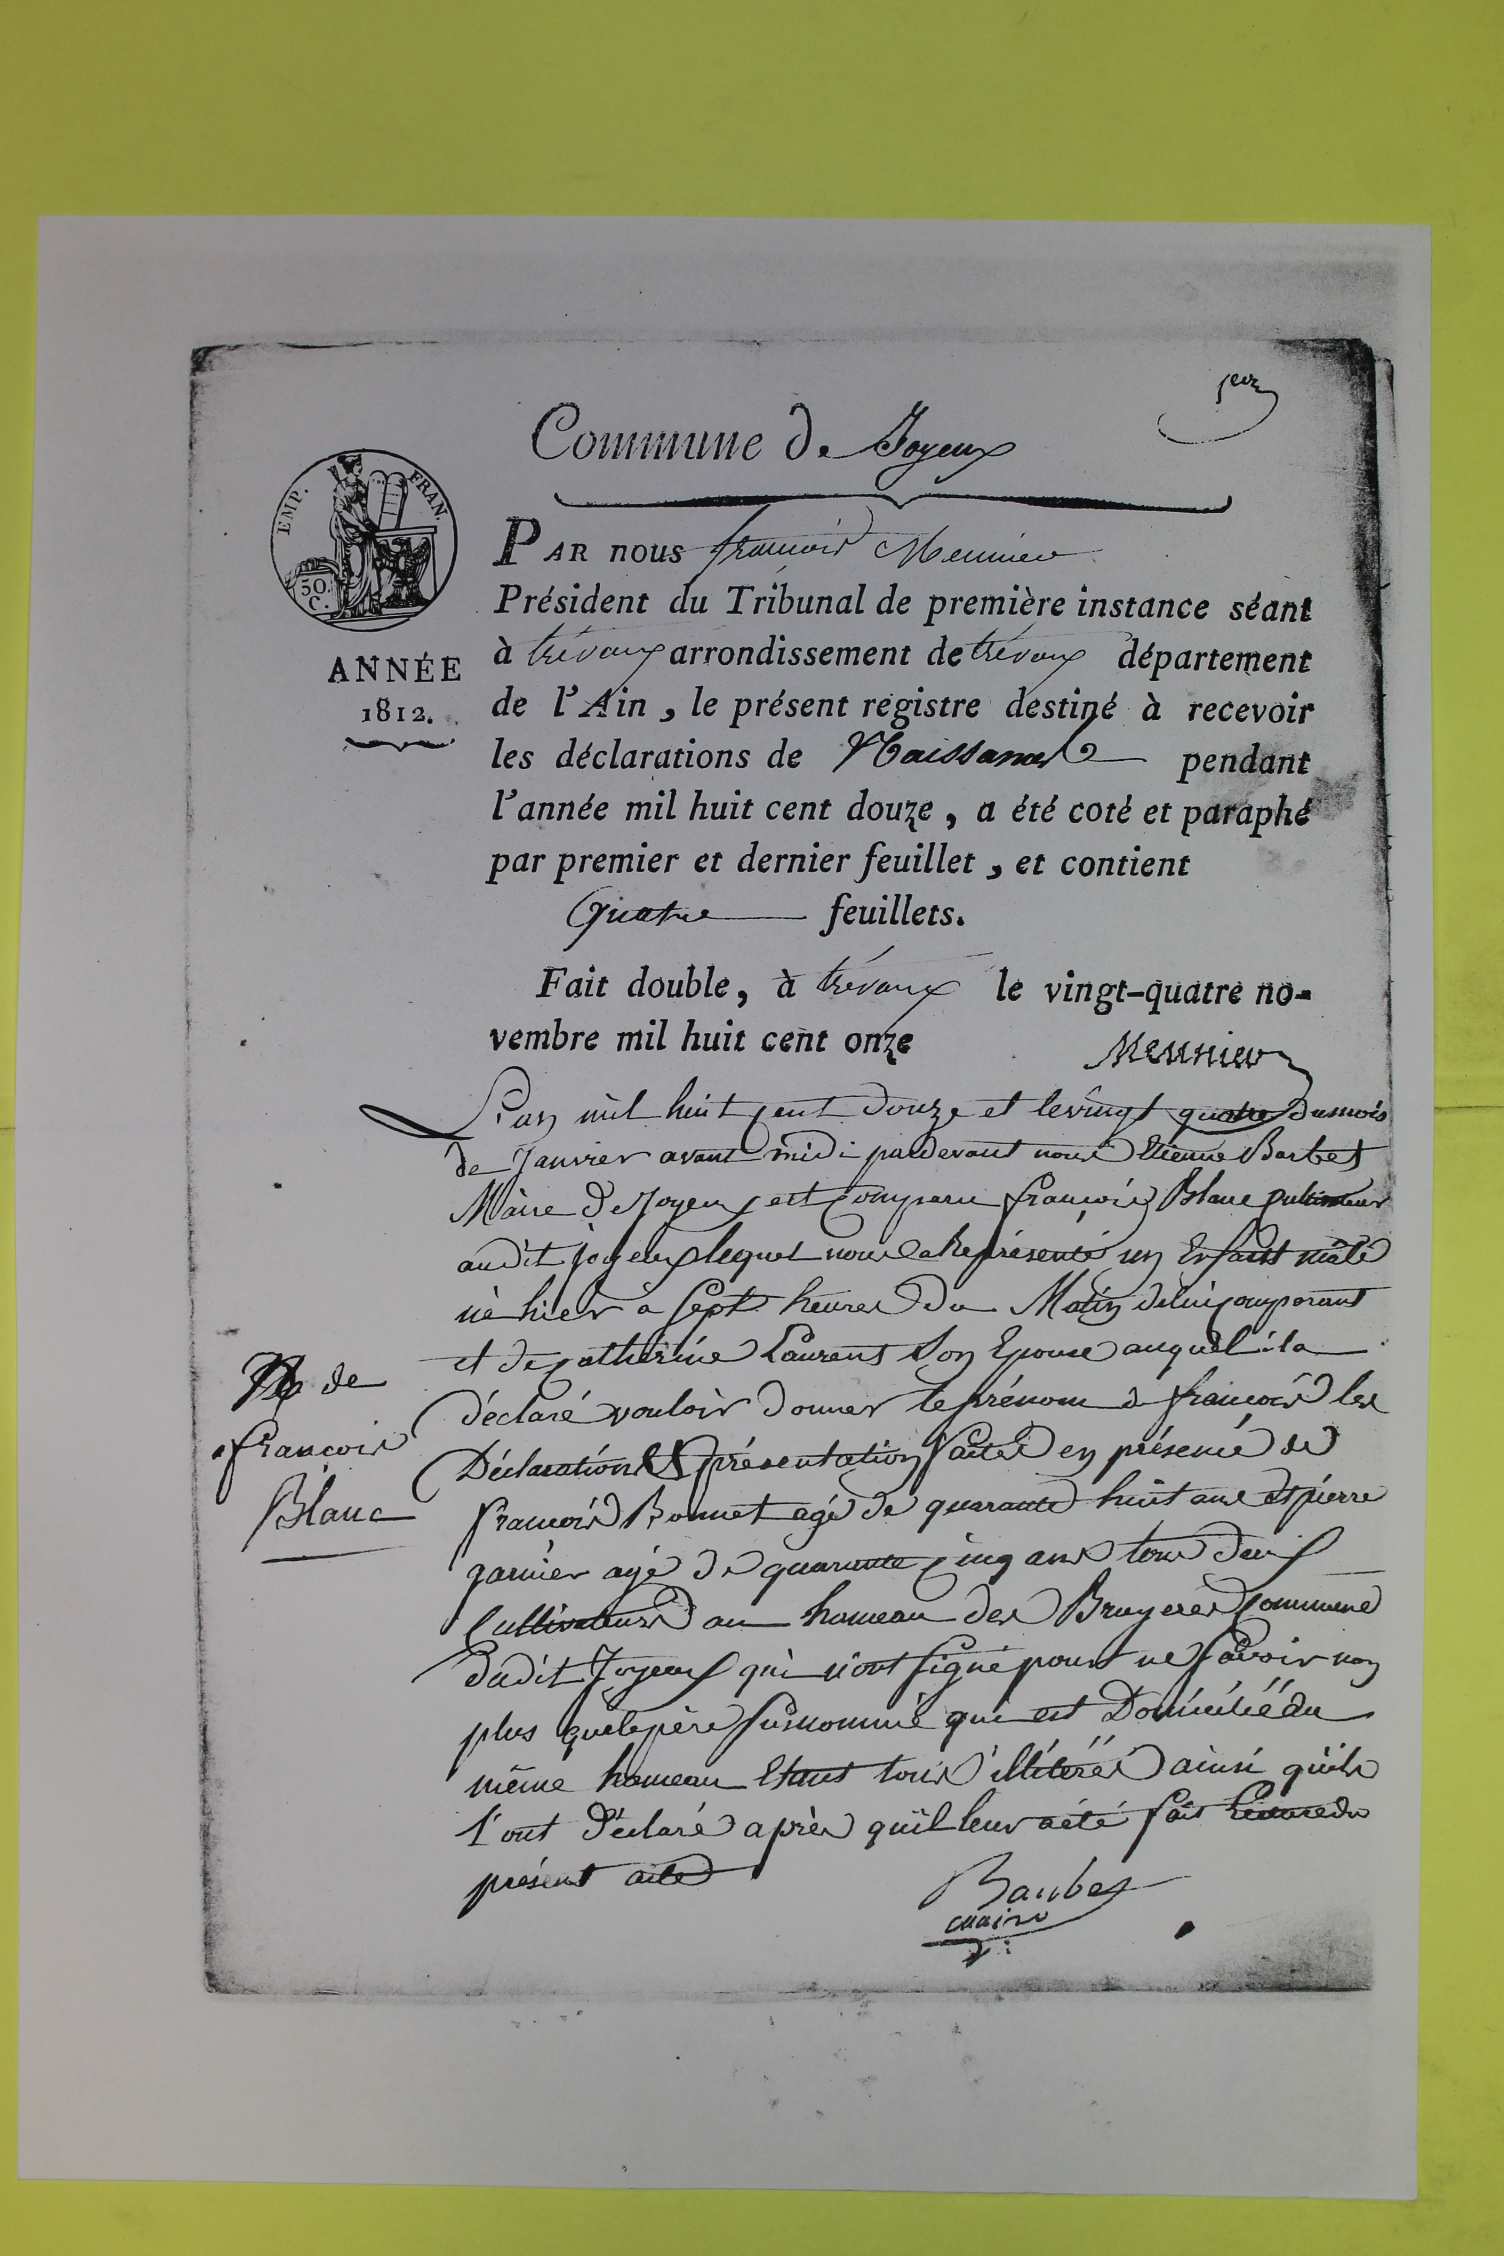 1er
Commune de Joyeux
EMP. FRAN.
50.
C.
ANNÉE
1812.
PAR nous françois Meunier
Président du Tribunal de première instance séant
à trévoux arrondissement de trévoux département
de l'Ain, le présent registre destiné à recevoir
les déclarations de Naissances pendant
l'année mil huit cent douze, a été coté et paraphé
par premier et dernier feuillet, et contient
Quatre feuillets.
Fait double, à trévoux le vingt-quatre no-
vembre mil huit cent onze
Meunier
L'an mil huit cent douze et le vingt quatre du mois
de Janvier avant midi pardevant nous Etienne Barbet
Maire de Joyeux est Comparu françois Blanc Cultivateur
audit joyeux lequel nous a Représenté un Enfant mâle
né hier à Sept heures du Matin de lui comparant
et de catherine Laurent Son Epouse auquel il a
déclaré vouloir donner le prénom de françois les
Déclaration & présentation faites en présence de
françois Bonnet agé de quarante huit ans et pierre
garnier agé de quarante cinq ans tous deux
Cultivateurs au hameau des Bruyeres Commune
dudit Joyeux qui n'ont signé pour ne savoir non
plus que le père susnommé qui est Domicilié au
même hameau Etant tous illiterés ainsi qu'ils
l'ont déclaré après qu'il leur a été fait lecture du
présent acte
N de
françois
Blanc
Barbet
maire